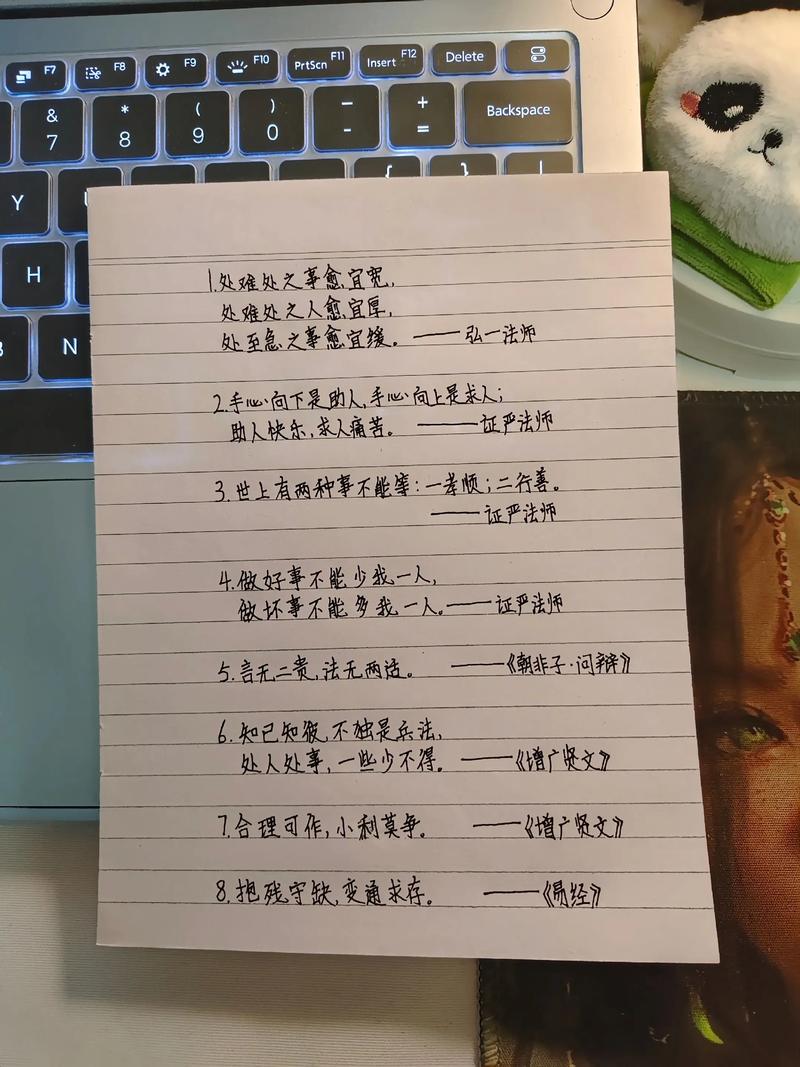 F7 F8 F9 F10 PrtScn F11 Insert F12 Delete
& 7 * 8 ( 9 ) 0 − - + = Backspace
Y U { } |
H
B N
1.处难处之事愈宜宽,
处难处之人愈宜厚,
处至急之事愈宜缓。——弘一法师
2.手心向下是助人,手心向上是求人;
助人快乐,求人痛苦。——证严法师
3.世上有两种事不能等:一孝顺;二行善。
——证严法师
4.做好事不能少我一人,
做坏事不能多我一人。——证严法师
5.言无二贵,法无两适。——《朝非子·问辩》
6.知已知彼,不独是兵法,
处人处事,一些少不得。——《增广贤文》
7.合理可作,小利莫争。——《增广贤文》
8.抱残守缺,变通求存。——《易经》